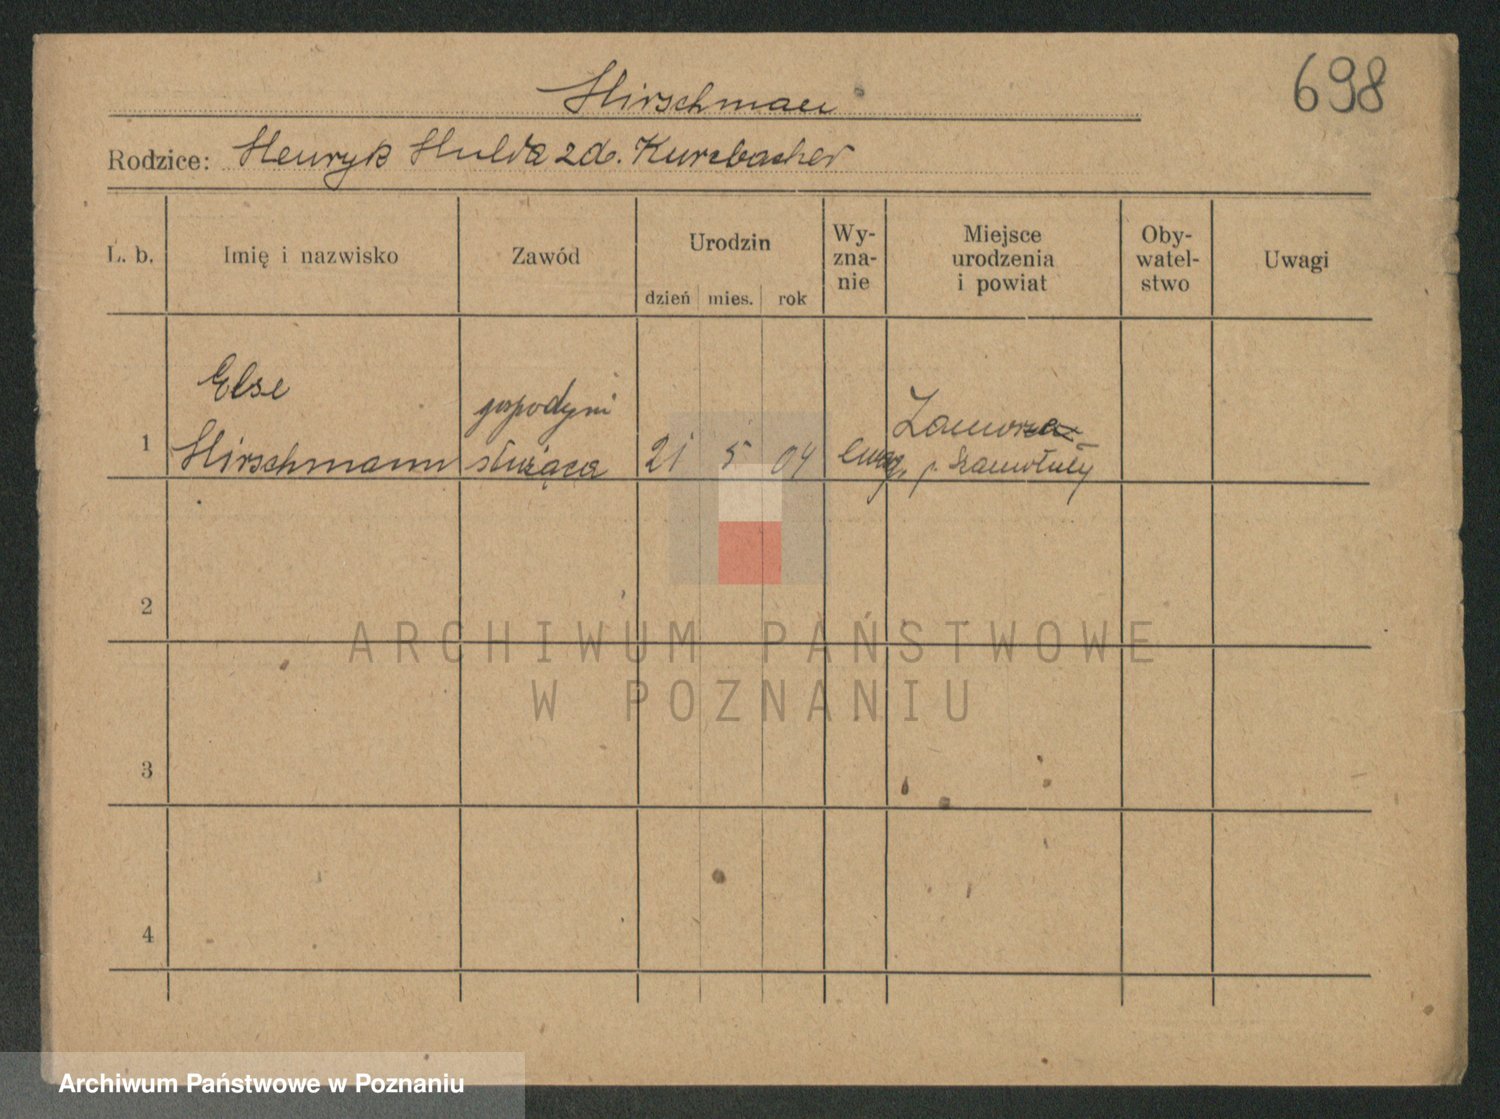 698
Hirschman
Rodzice: Henryk Hulda zd. Kurzbacher
L. b.
Imię i nazwisko
Zawód
Urodzin
dzień mies. rok
Wy-
zna-
nie
Miejsce
urodzenia
i powiat
Oby-
watel-
stwo
Uwagi
1
Else
Hirschmann
gospodyni
służąca
21 5 04
ewag.
p. Szamotuły
2
3
4
ARCHIWUM PAŃSTWOWE
W POZNANIU
Archiwum Państwowe w Poznaniu